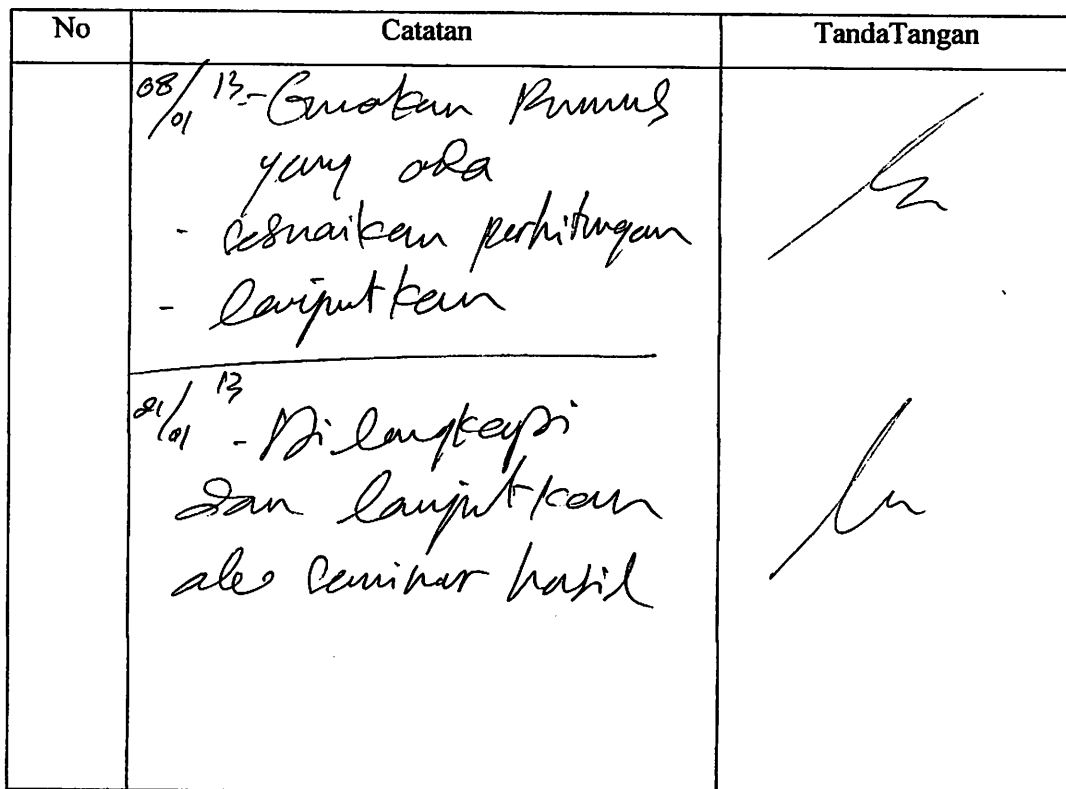 No Catatan TandaTangan
08/01 13 - Gunakan Rumus
yang ada
- sesuaikan perhitungan
- lanjutkan
21/01 13 - Di lengkapi
dan lanjutkan
seminar hasil